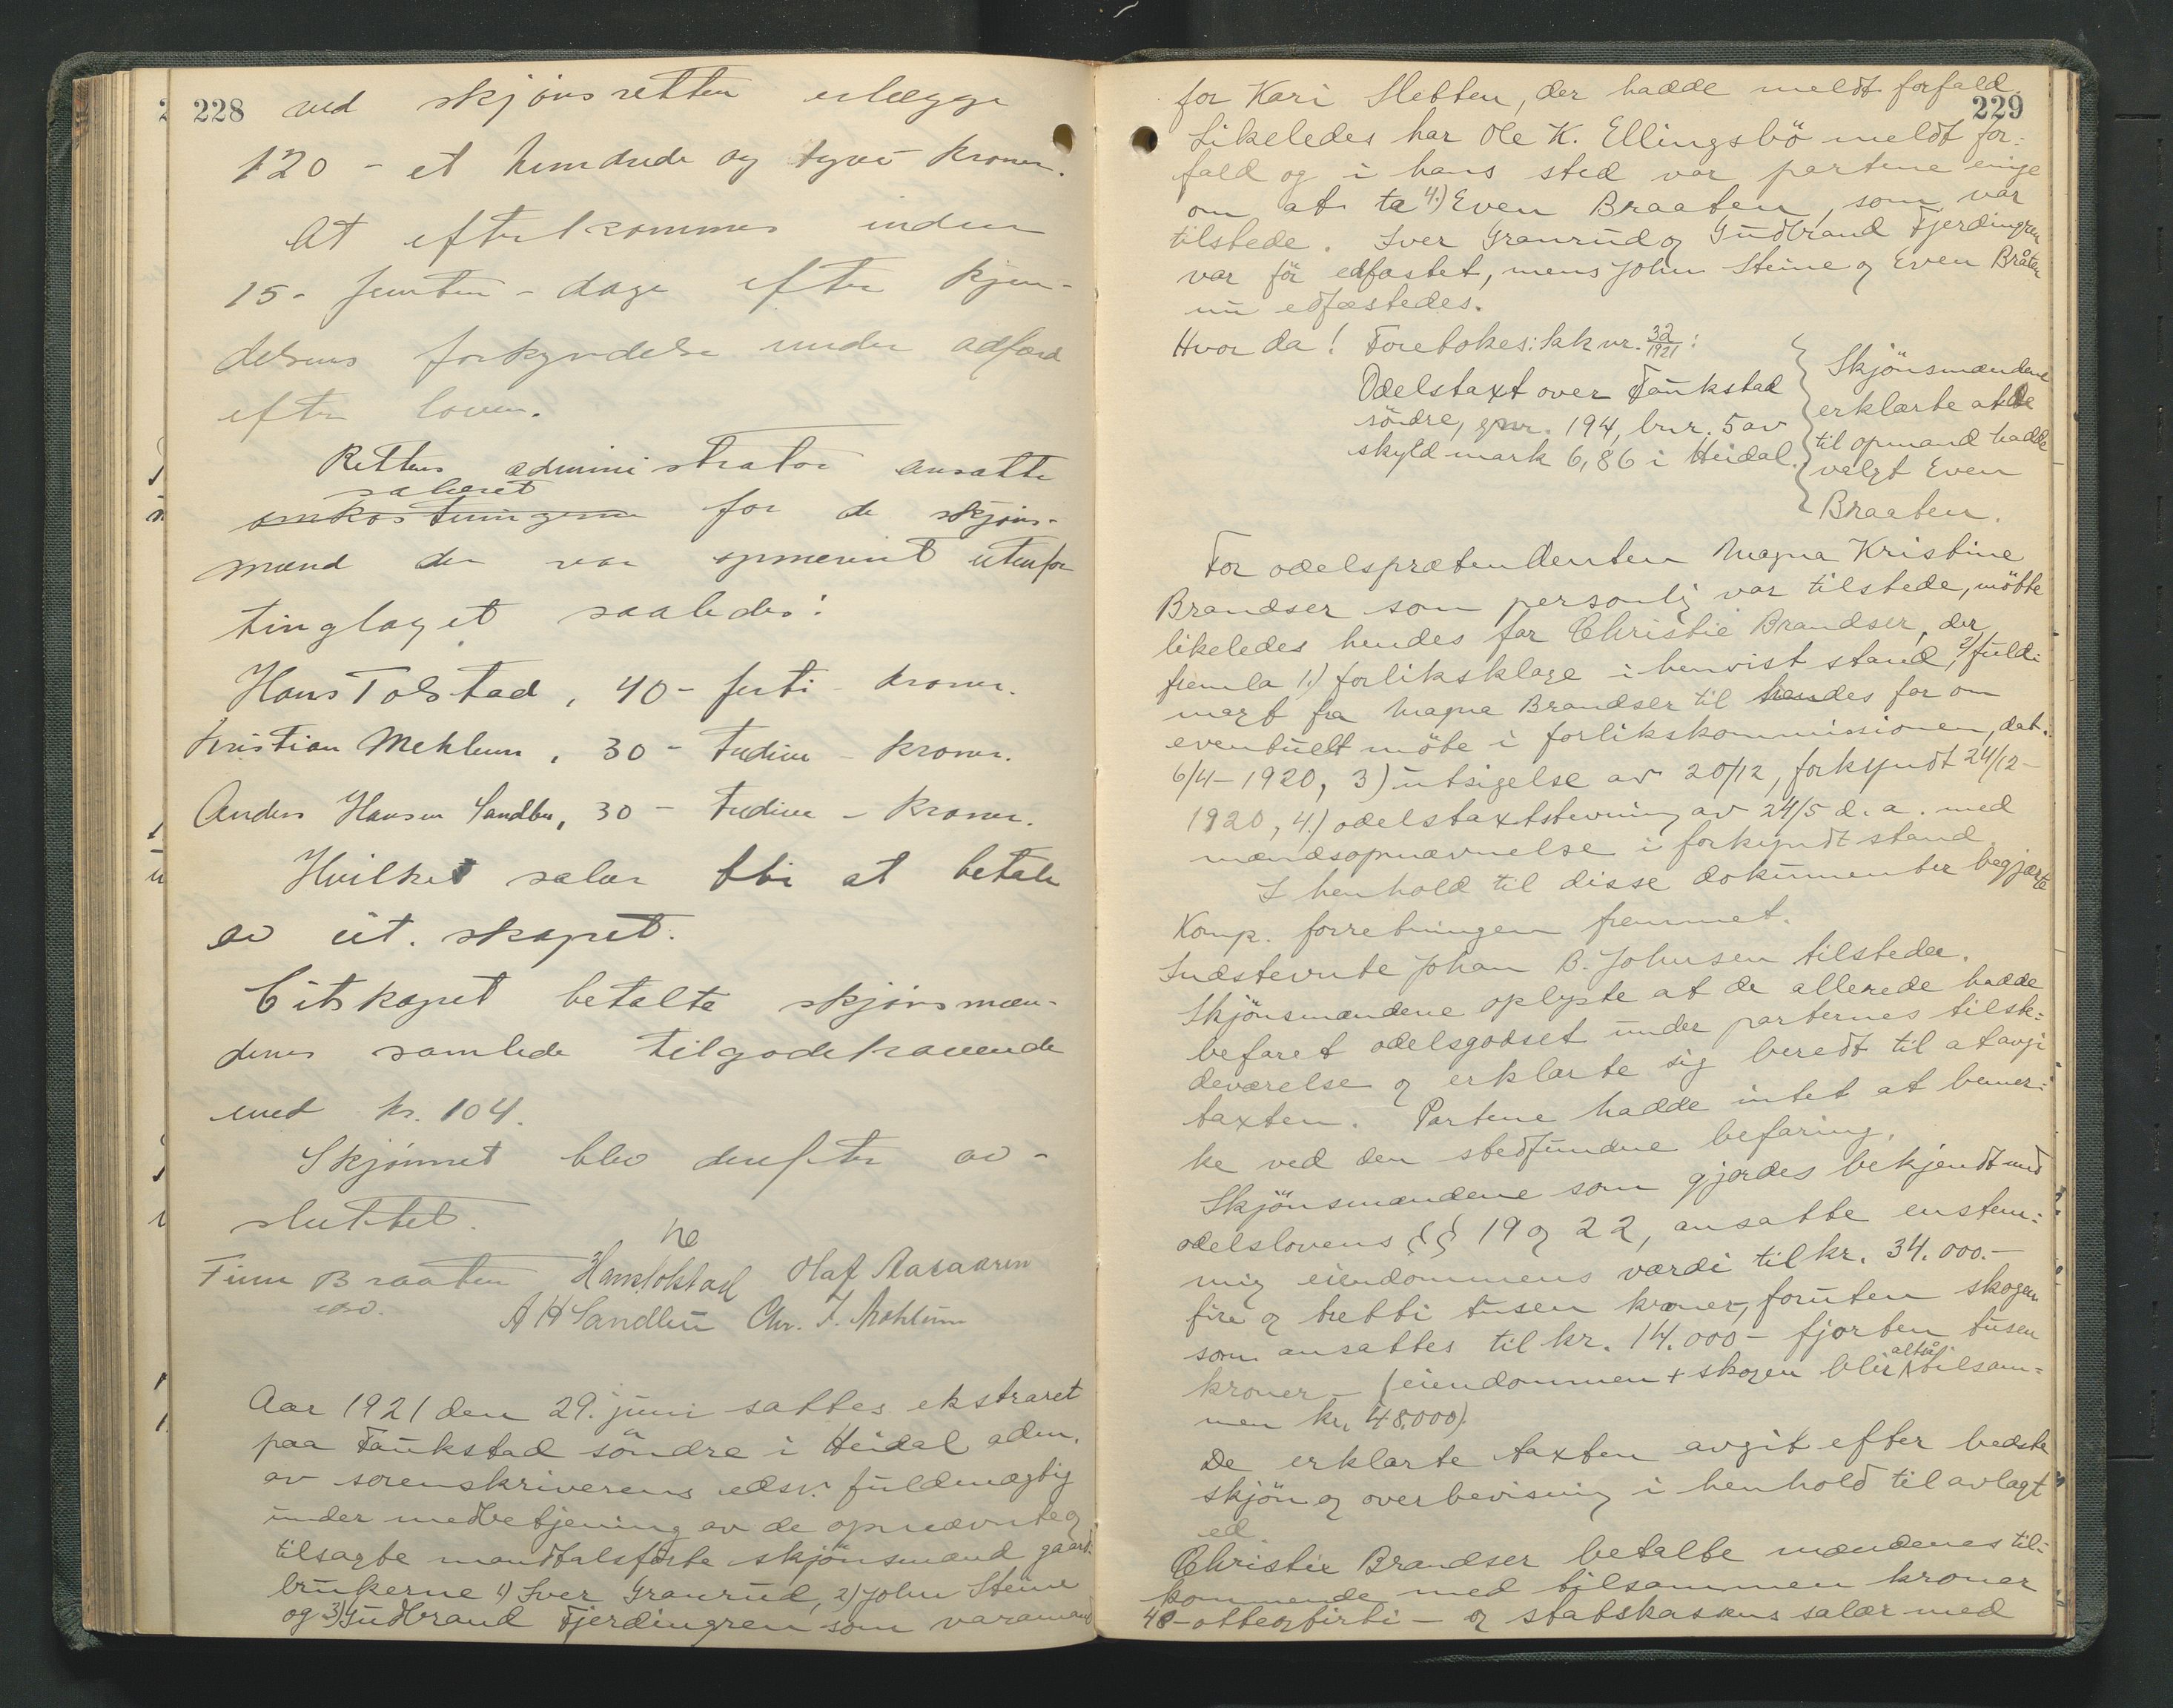 228 ved skjønsretten erlægge
120 - et hundrede og tyve - kroner.
At efterkommes inden
15 - femten - dage efter kjen-
delsens forkyndelse under adfærd
efter loven.
Rettens administrator ansatte
salæret
omkostningerne for de skjøns-
mænd der var opnævnt utenfor
tinglaget saaledes:
Hans Tolstad, 40 - førti - kroner.
Kristian Mehlum, 30 - tredive - kroner.
Anders Hansen Sandbu, 30 - tredive - kroner.
Hvilket salær blir at betale
av ut. skapet.
Utskapet betalte skjønsmæn-
denes samlede tilgodehavende
med kr. 104.
Skjønnet blev derefter av-
sluttet.
Finn Braaten Hans Tolstad Olaf Aasaaren
edsv. A H Sandbu Chr. F. Mehlum
Aar 1921 den 29. juni sattes ekstraret
paa Taukstad söndre i Heidal adm.
av sorenskriverens edsv. fuldmægtig
under medbetjening av de opnævnte og
tilsagte mandtalsförte skjönsmænd gaard-
brukerne 1) Iver Granrud, 2) John Steine
og 3) Gudbrand Fjerdingren som varamand
229
for Kari Sletten, der hadde meldt forfald.
Likeledes har Ole K. Ellingsbö meldt for-
fald og i hans sted var partene enige
om at ta 4.) Even Braaten, som var
tilstede. Iver Granrud og Gudbrand Fjerdingren
var för edfæstet, mens John Steine og Even Bråten
nu edfæstedes.
Hvor da! Foretokes: sak nr. 32/1921:
Odelstaxt over Taukstad
söndre, gnr. 194, bnr. 5 av
skyld mark 6,86 i Heidal.
Skjönsmændene
erklærte at de
til opmand hadde
valgt Even
Braaten.
For odelsprætendenten Magna Kristine
Brandser som personlig var tilstede, mötte
likeledes hendes far Christie Brandser, der
fremla 1.) forliksklage i henvist stand, 2) fuld-
magt fra Magna Brandser til hendes far om
eventuelt möte i forlikskommissionen, dat.
6/4-1920, 3) utsigelse av 20/12, forkyndt 24/12-
1920, 4.) odelstaxtstevning av 24/5 d.a. med
mændsopnævnelse i forkyndt stand
I henhold til disse dokumenter begjærte
Komp. forretningen fremmet.
Indstevnte Johan B. Johnsen tilstede.
Skjönsmændene oplyste at de allerede hadde
befaret odelsgodset under parternes tilste-
deværelse og erklærte sig beredt til at avgi
taxten. Partene hadde intet at bemer-
ke ved den stedfundne befaring.
Skjönsmændene som gjordes bekjendt med
odelslovens §§ 19 og 22, ansatte enstem-
mig eiendommens værdi til kr. 34.000.-
fire og tretti tusen kroner, foruten skogen
som ansattes til kr. 14.000 - fjorten tusen
altså
kroner - (eiendommen + skogen blir tilsam-
men kr. 48.000).
De erklærte taxten avgit efter bedste
skjön og overbevisning i henhold til avlagt
ed.
Christie Brandser betalte mændenes til-
kommende med tilsammen kroner
48 - otteogfirti - og statskassens salær med